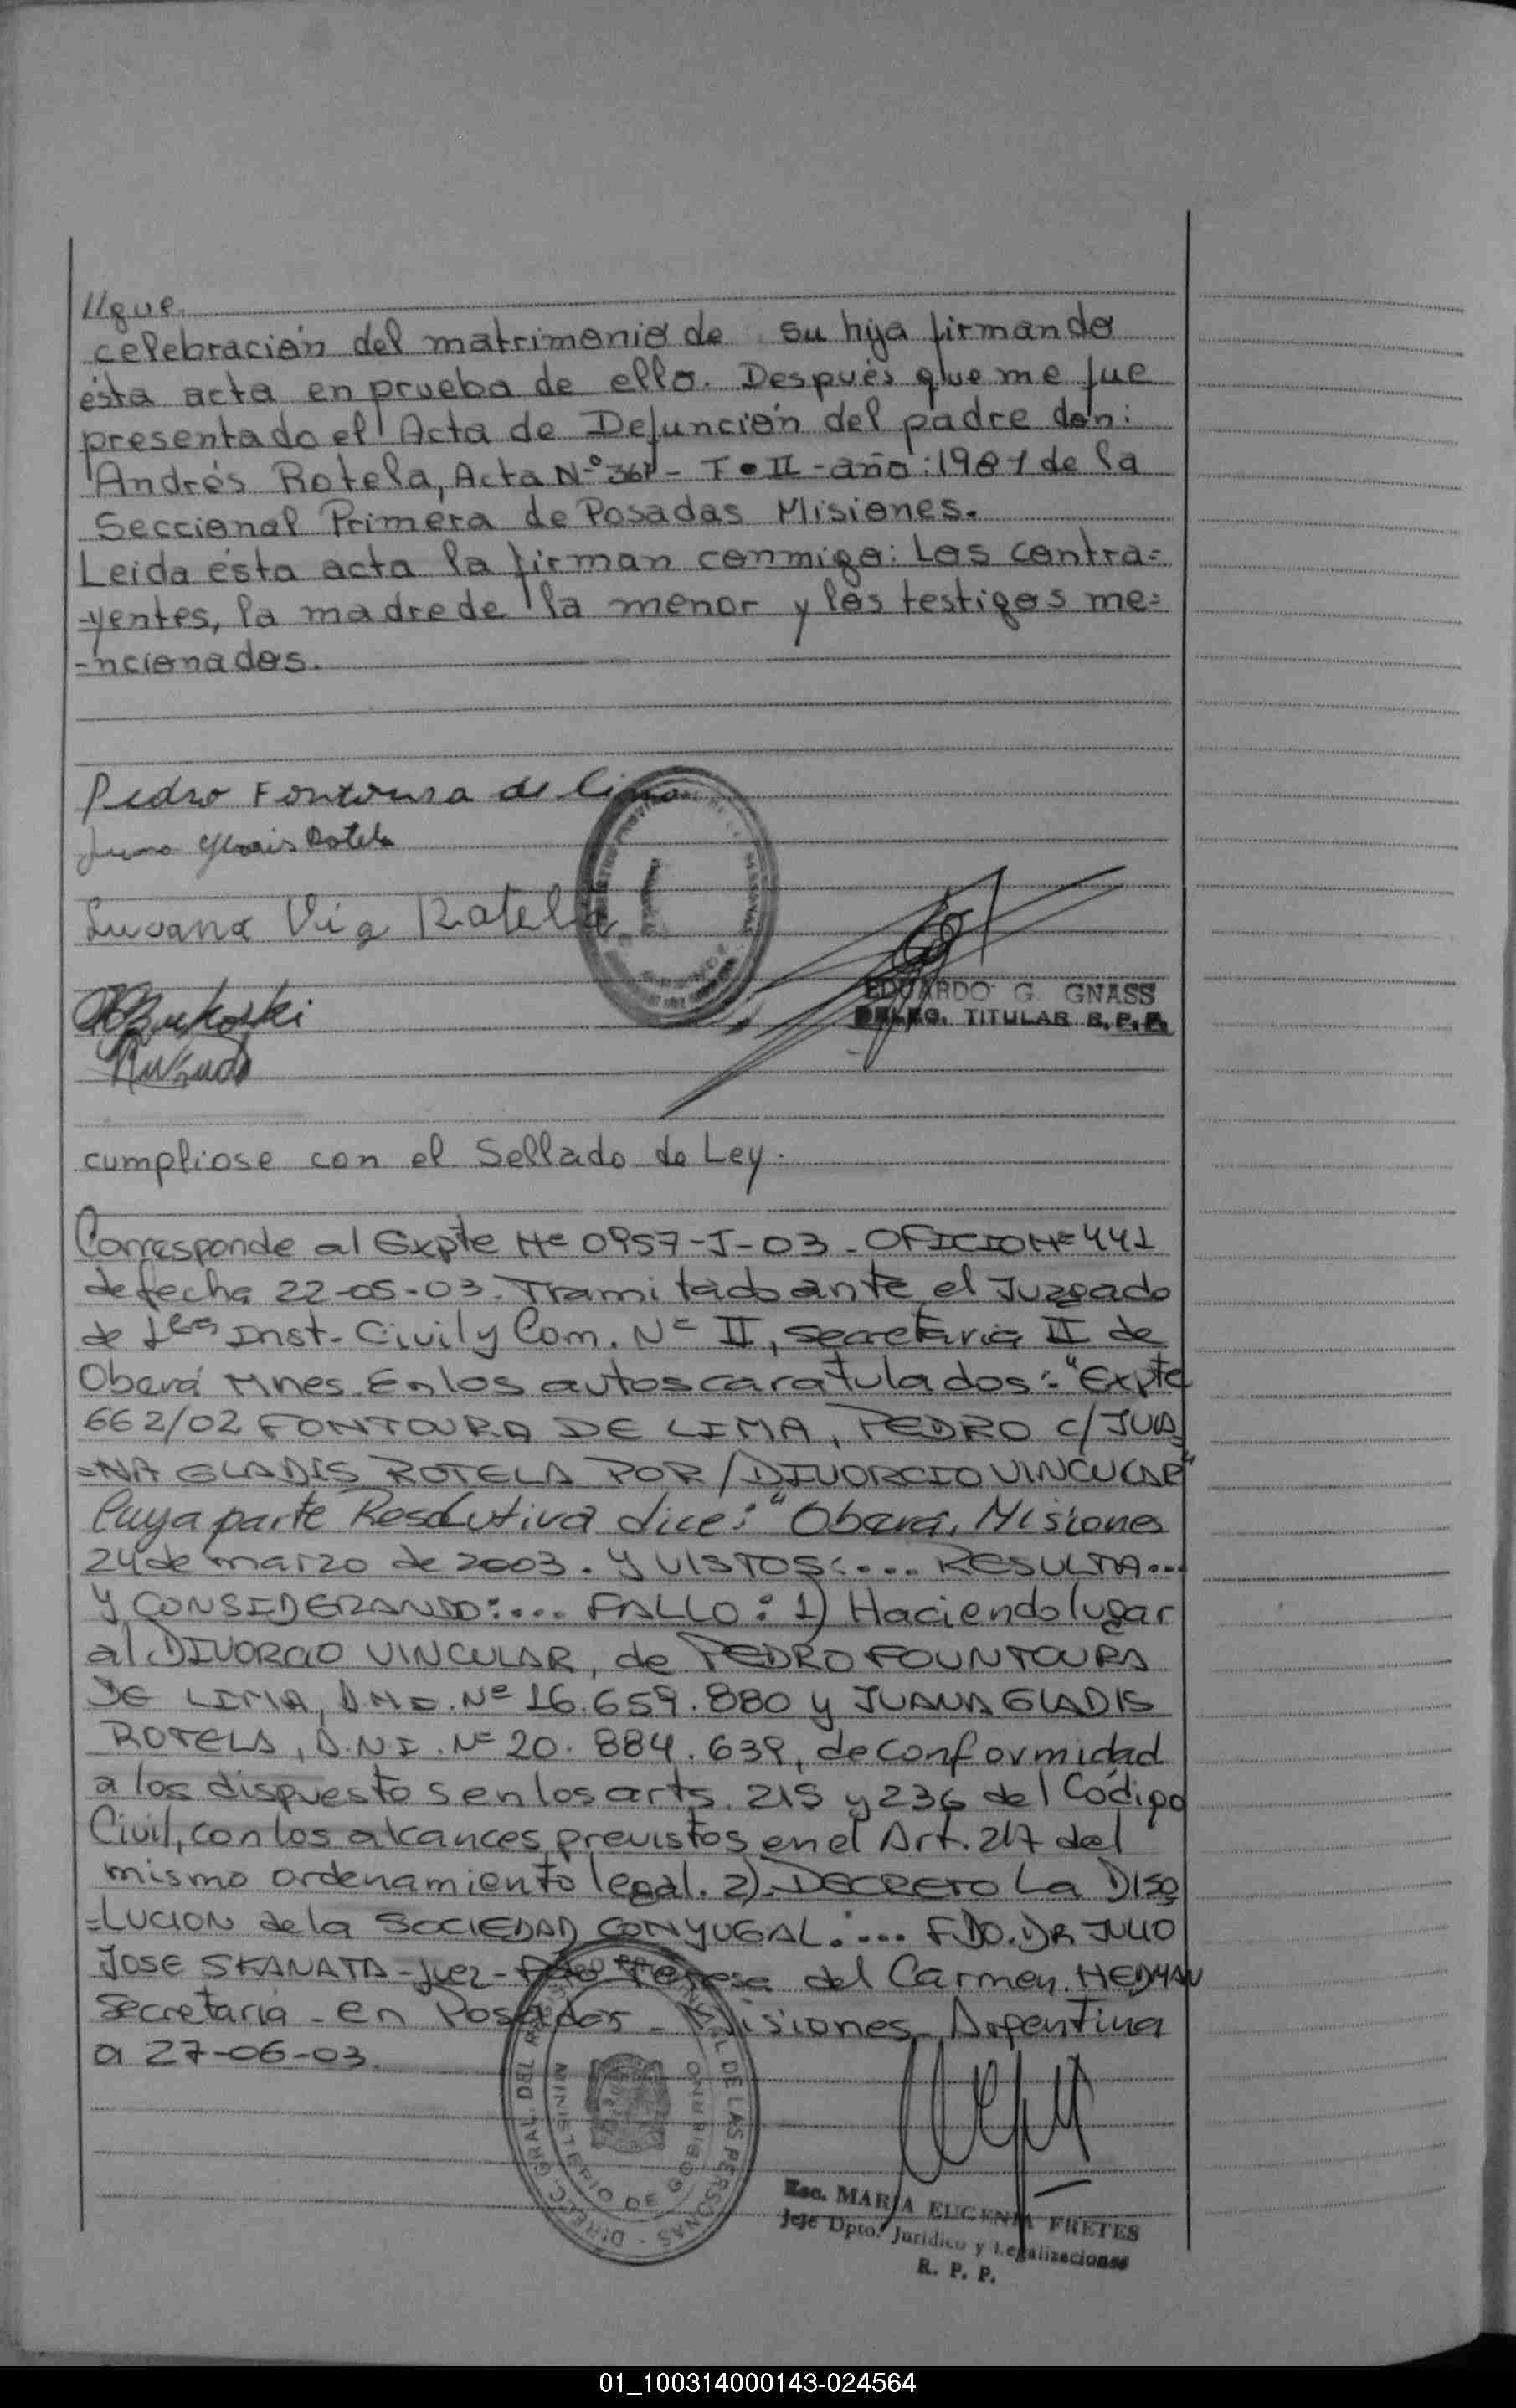 //gue.
celebración del matrimonio de su hija firmando
ésta acta en prueba de ello. Después que me fue
presentado el Acta de Defunción del padre don:
Andrés Rotela, Acta Nº - T•II - año: 1981 de la
Seccional Primera de Posadas Misiones.
Leida ésta acta la firman conmigo: Los contra=
-yentes, la madre de la menor y los testigos me=
-ncionados.
Pedro Fontoura de Lima
Juana Gladis Rotela
Rotela
EDUARDO G. GNASS
DELEG. TITULAR R.P.P.
cumpliose con el Sellado de Ley.
Corresponde al Expte Nº 0957-J-03 - OFICIO Nº 441
de fecha 22-05-03. Tramitado ante el Juzgado
de 1era Inst. Civil y Com. Nº II, secretaria II de
Oberá Mnes. En los autos caratulados: "Expte
662/02 FONTOURA DE LIMA, PEDRO C/ JUA
=NA GLADIS ROTELA POR/DIVORCIO VINCULAR"
Cuya parte Resolutiva dice: "Oberá, Misiones
24 de marzo de 2003. Y VISTOS:... RESULTA...
Y CONSIDERANDO:... FALLO: 1) Haciendo lugar
al DIVORCIO VINCULAR, de PEDRO FOUNTOURA
DE LIMA, D.N.I. Nº 16.659.880 y JUANA GLADIS
ROTELA, D.N.I. Nº 20.884.639, de conformidad
a los dispuestos en los arts. 215 y 236 del Código
Civil, con los alcances previstos en el Art. 217 del
mismo ordenamiento legal. 2). DECRETO La DISO
=LUCION de la SOCIEDAD CONYUGAL:... FDO. DR JULIO
JOSE SKANATA - Juez - Fdo Teresa del Carmen HEDMAN
Secretaria - en Posadas - Misiones - Argentina
a 27-06-03.
DIREC. GRAL. DEL REGISTRO PROVINCIAL DE LAS PERSONAS
MINISTERIO DE GOBIERNO
Esc. MARIA EUGENIA FRETES
Jefe Dpto. Jurídico y Legalizaciones
R. P. P.
01_100314000143-024564